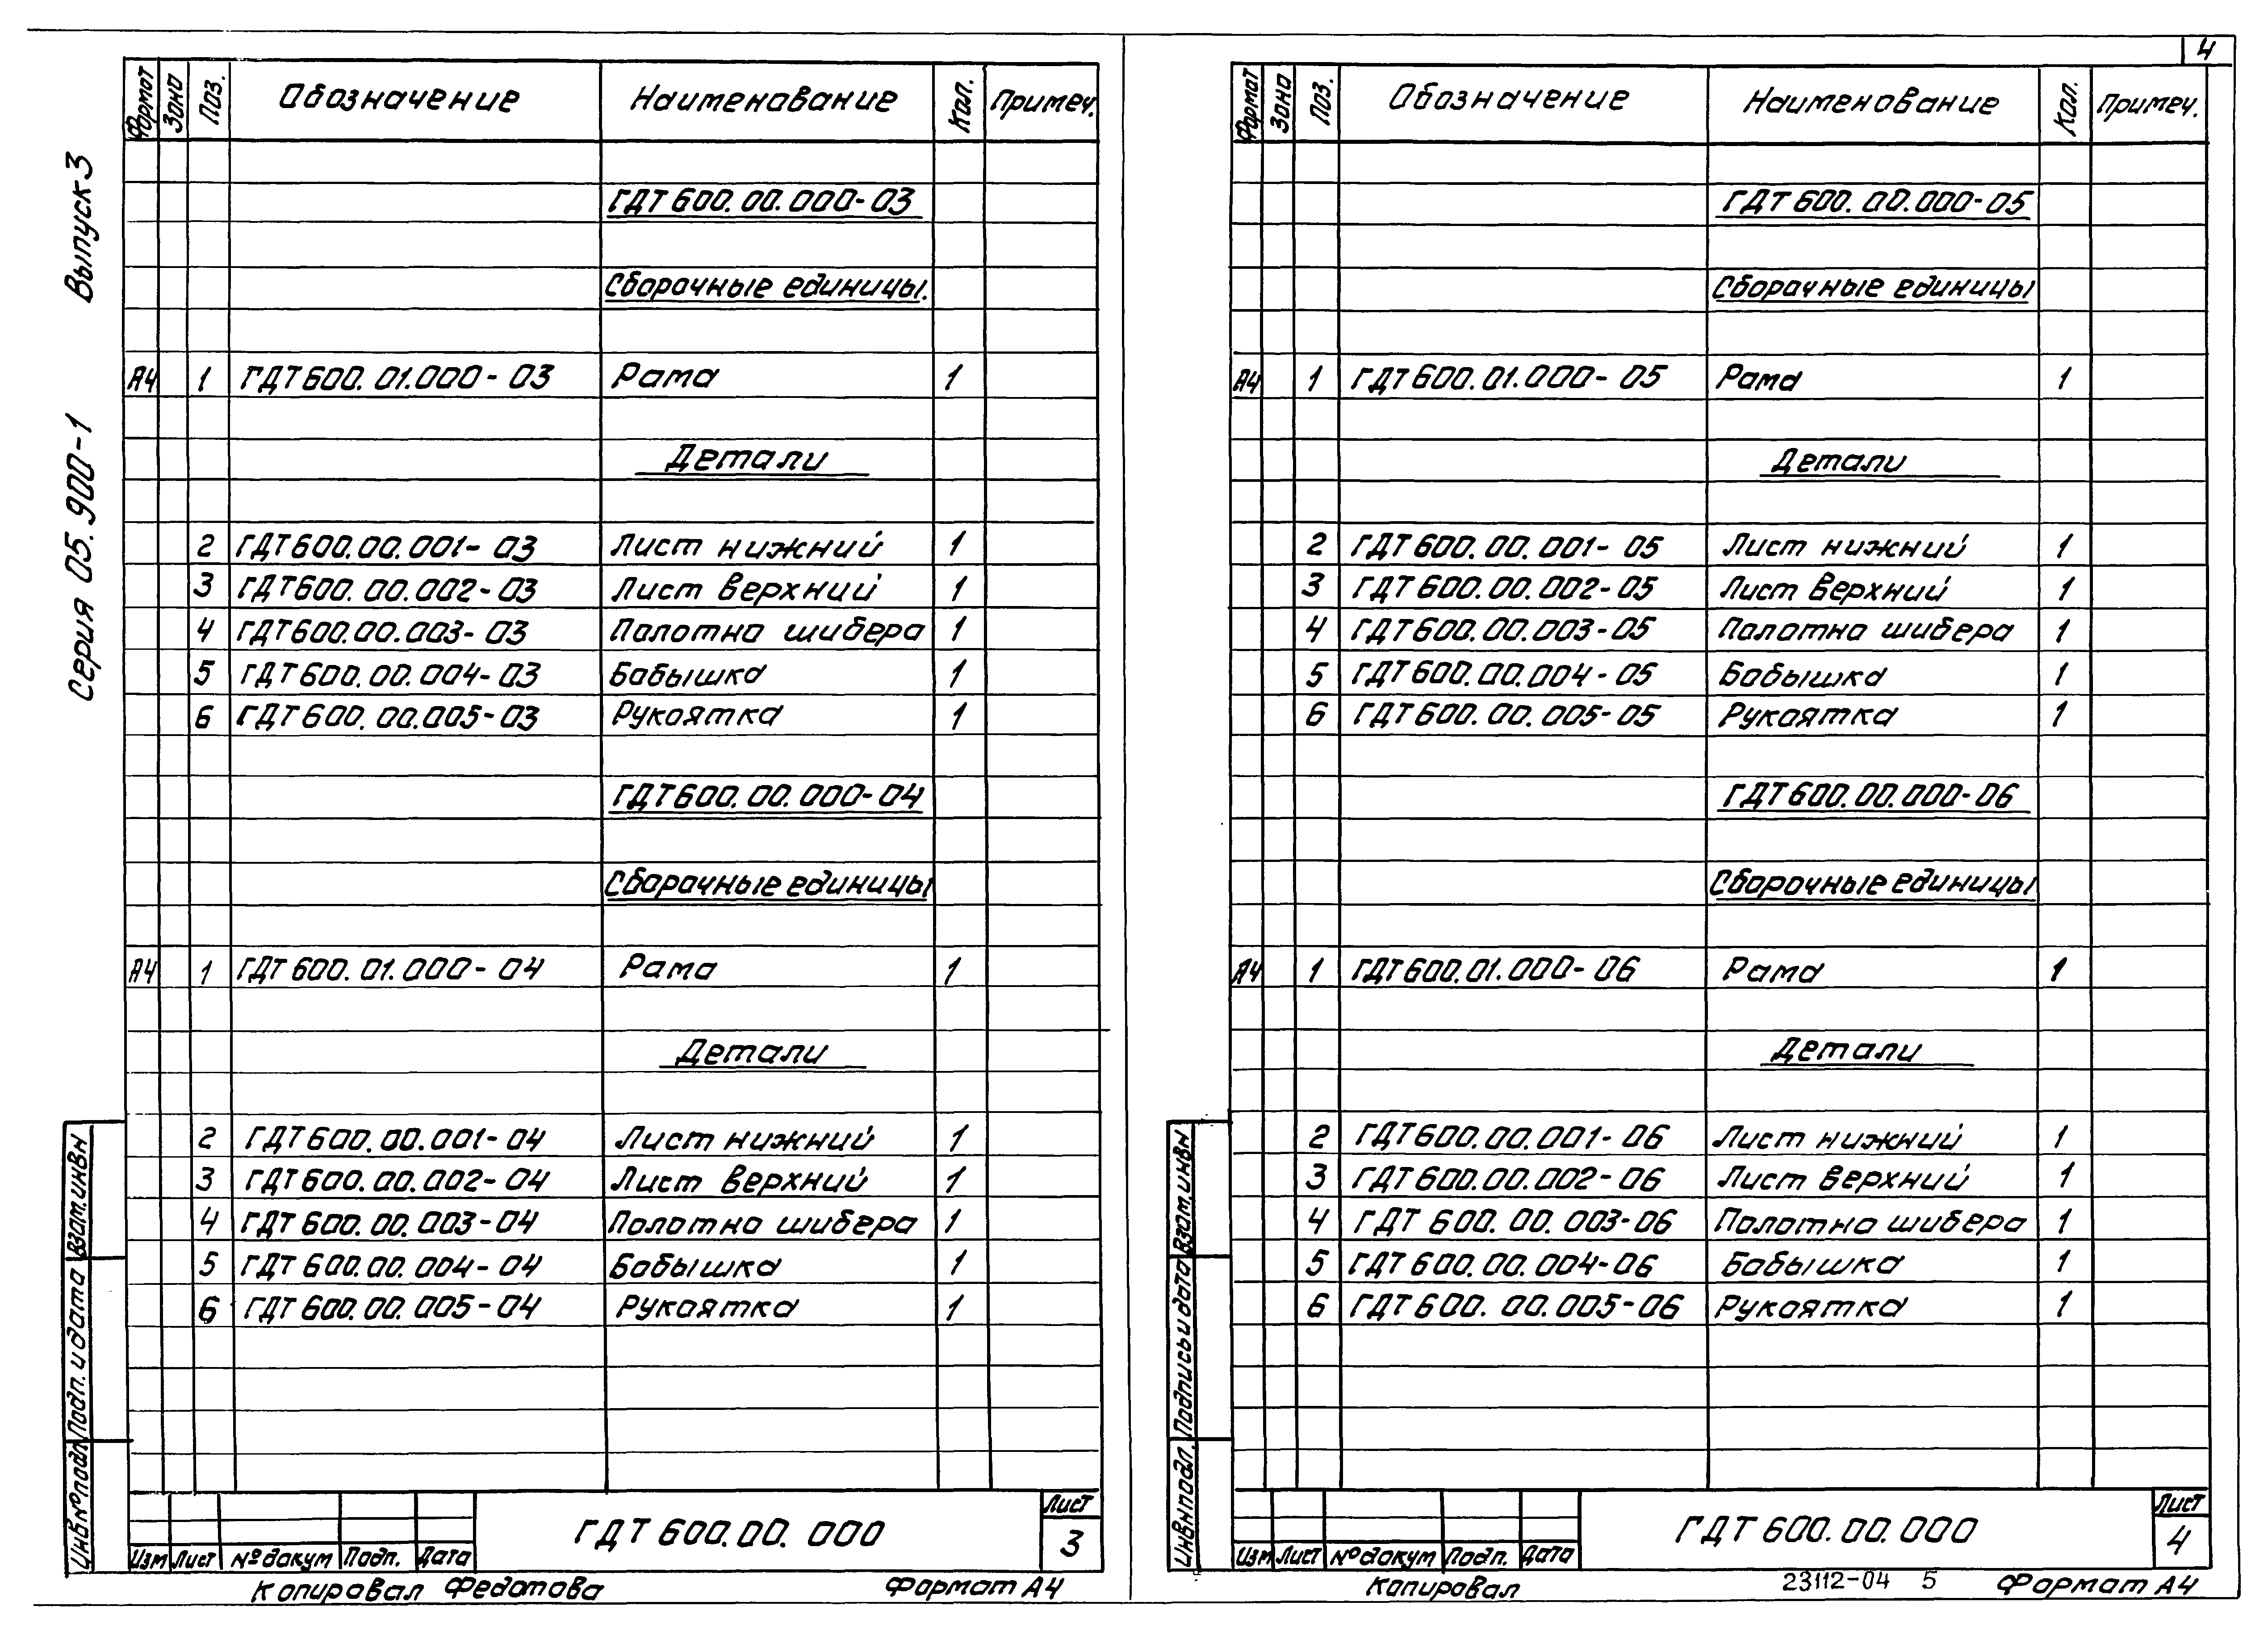 Серия 05.900-1 Выпуск 3
Формат Зона Поз. Обозначение Наименование Кол. Примеч.
ГДТ 600.00.000-03
Сборочные единицы.
А4 1 ГДТ 600.01.000-03 Рама 1
Детали
2 ГДТ 600.00.001-03 Лист нижний 1
3 ГДТ 600.00.002-03 Лист верхний 1
4 ГДТ 600.00.003-03 Полотно шибера 1
5 ГДТ 600.00.004-03 Бобышка 1
6 ГДТ 600.00.005-03 Рукоятка 1
ГДТ 600.00.000-04
Сборочные единицы
А4 1 ГДТ 600.01.000-04 Рама 1
Детали
2 ГДТ 600.00.001-04 Лист нижний 1
3 ГДТ 600.00.002-04 Лист верхний 1
4 ГДТ 600.00.003-04 Полотно шибера 1
5 ГДТ 600.00.004-04 Бобышка 1
6 ГДТ 600.00.005-04 Рукоятка 1
Инв № подл. Подп. и дата Взам. инв н
Изм Лист № докум Подп. Дата
ГДТ 600.00.000
Лист
3
Копировал Федотова Формат А4
4
Формат Зона Поз. Обозначение Наименование Кол. Примеч.
ГДТ 600.00.000-05
Сборочные единицы
А4 1 ГДТ 600.01.000-05 Рама 1
Детали
2 ГДТ 600.00.001-05 Лист нижний 1
3 ГДТ 600.00.002-05 Лист верхний 1
4 ГДТ 600.00.003-05 Полотно шибера 1
5 ГДТ 600.00.004-05 Бобышка 1
6 ГДТ 600.00.005-05 Рукоятка 1
ГДТ 600.00.000-06
Сборочные единицы
А4 1 ГДТ 600.01.000-06 Рама 1
Детали
2 ГДТ 600.00.001-06 Лист нижний 1
3 ГДТ 600.00.002-06 Лист верхний 1
4 ГДТ 600.00.003-06 Полотно шибера 1
5 ГДТ 600.00.004-06 Бобышка 1
6 ГДТ 600.00.005-06 Рукоятка 1
Инв н подл. Подпись и дата Взам. инв н
Изм Лист № докум Подп. Дата
ГДТ 600.00.000
Лист
4
Копировал 23112-04 5 Формат А4